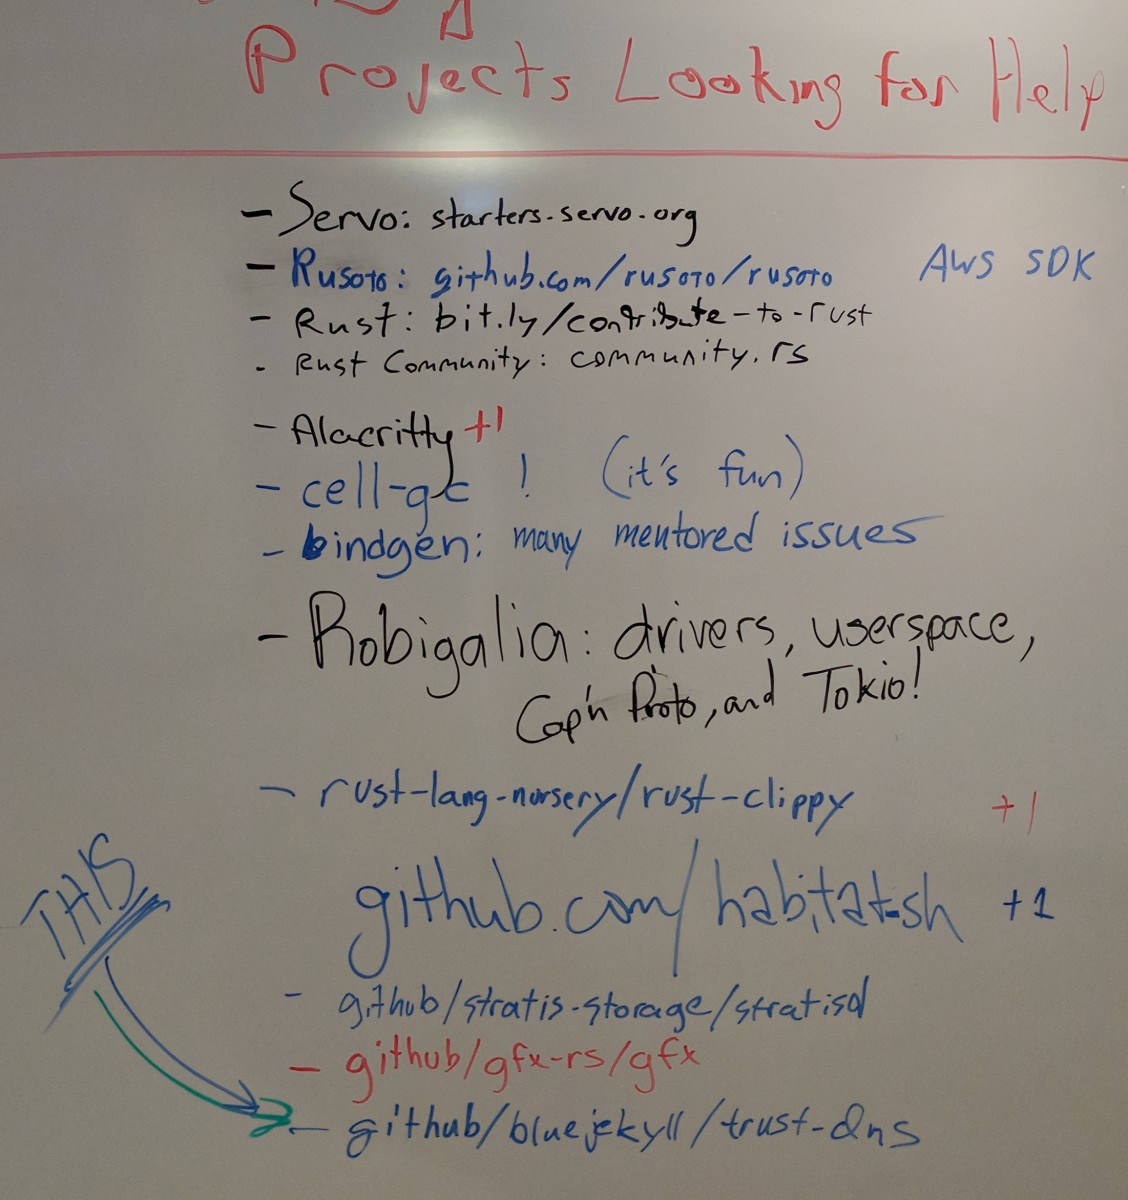 Projects Looking for Help
- Servo: starters.servo.org
- Rusoto: github.com/rusoto/rusoto AWS SDK
- Rust: bit.ly/contribute-to-rust
- Rust Community: community.rs
- Alacritty +1
- cell-gc ! (it's fun)
- bindgen: many mentored issues
- Robigalia: drivers, userspace,
Cap'n Proto, and Tokio!
- rust-lang-nursery/rust-clippy +1
github.com/habitat-sh +1
THIS
- github/stratis-storage/stratisd
- github/gfx-rs/gfx
- github/bluejekyll/trust-dns